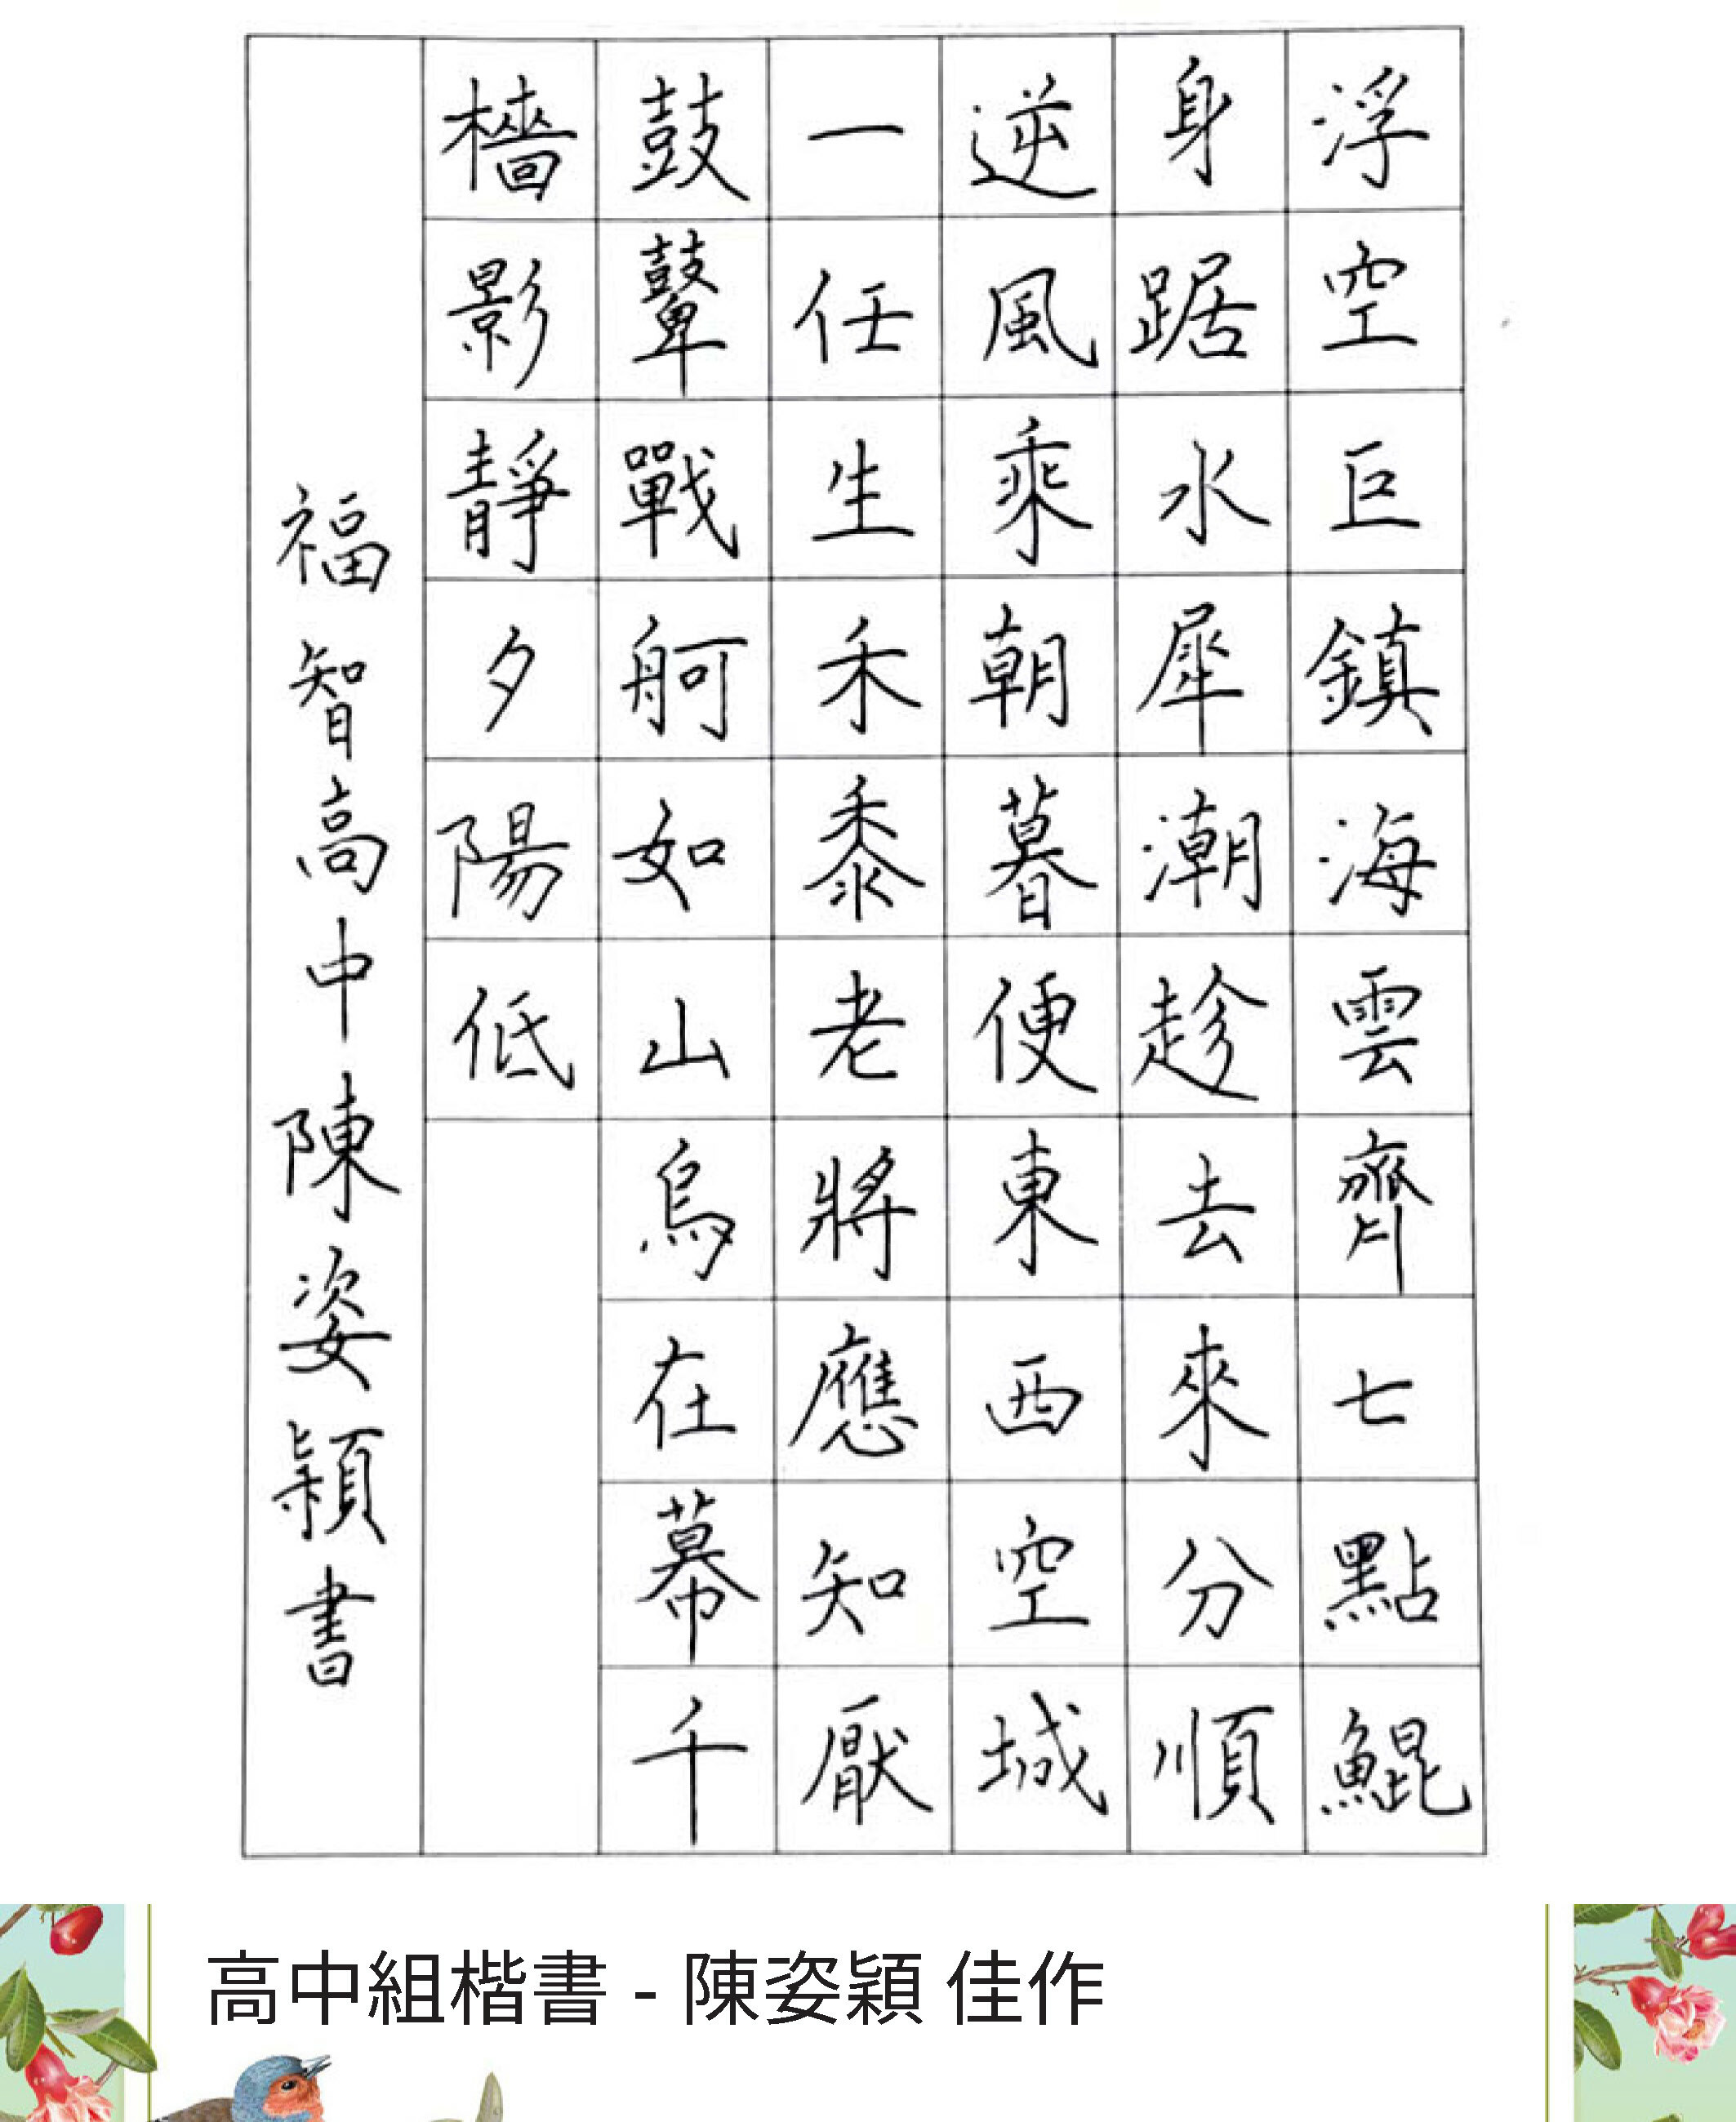 浮空巨鎮海雲齊七點鯤
身踞水犀潮趁去來分順
逆風乘朝暮便東西空城
一任生禾黍老將應知厭
鼓鼙戰舸如山烏在幕千
檣影靜夕陽低
福智高中陳姿穎書
高中組楷書 - 陳姿穎 佳作